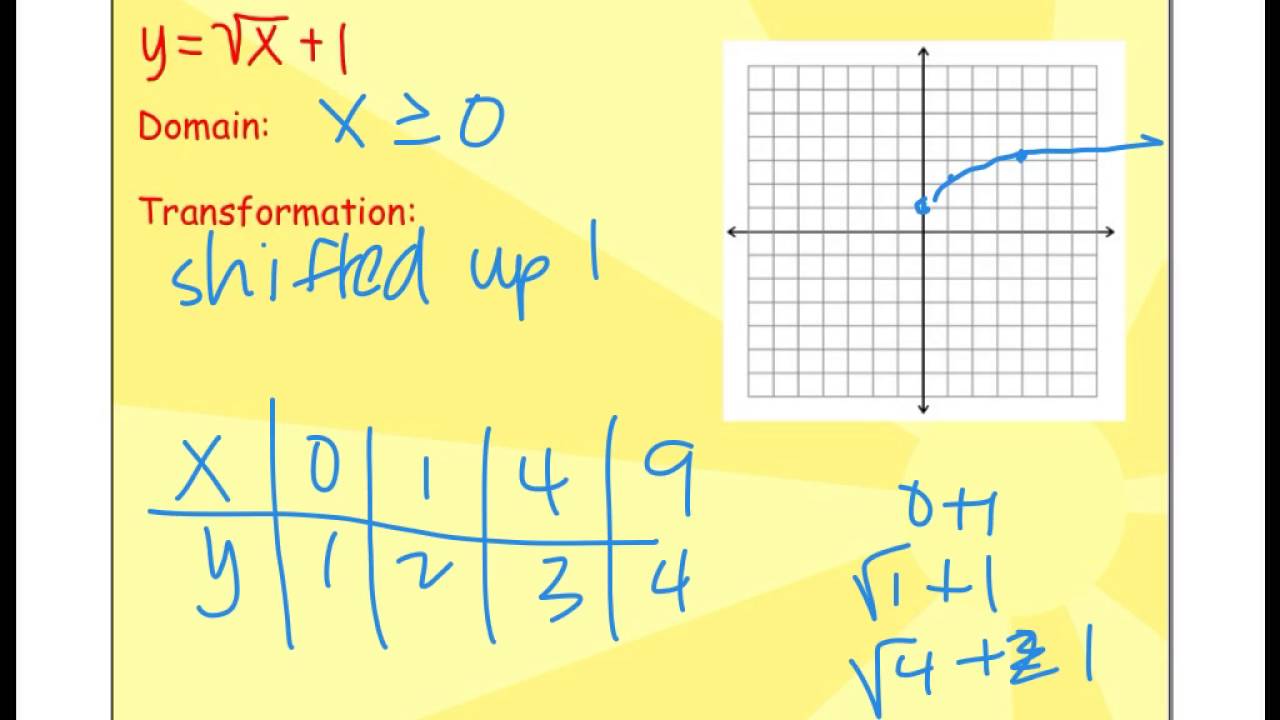 y=√x+1
Domain: x ≥ 0
Transformation:
shifted up 1
x 0 1 4 9
y 1 2 3 4
0+1
√1+1
√4+ 1